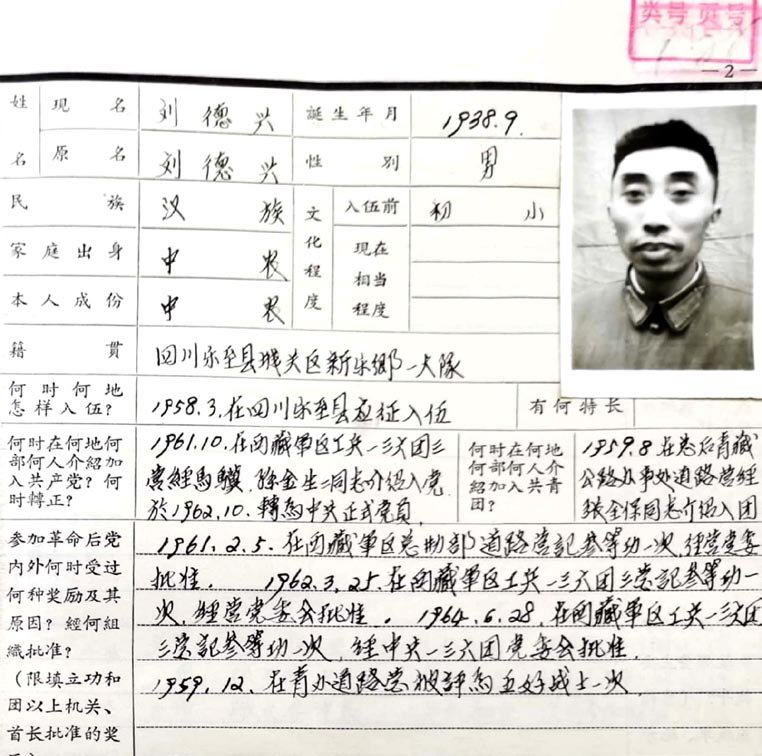 类号页号
—2—
姓名 现名 刘德兴 誕生年月 1938.9.
原名 刘德兴 性别 男
民族 汉族 文化程度 入伍前 初小
家庭出身 中农 现在相当程度
本人成份 中农
籍貫 四川乐至县城关区新乐鄉一大隊
何时何地怎样入伍？ 1958.3.在四川乐至县应征入伍 有何特长
何时在何地何部何人介紹加入共产党？何时轉正？
1961.10.在西藏軍区工兵一三六团三
营經馬驥.徐金生二同志介绍入党
於1962.10.轉為中共正式党員
何时在何地何部何人介紹加入共青团？
1959.8在总后青藏
公路办事处道路营經
張全保同志介绍入团
参加革命后党
内外何时受过
何种奖励及其
原因？經何組
織批准？
（限填立功和
团以上机关、
首长批准的奖
1961.2.5.在西藏軍区总勤部道路营記叁等功一次,經营党委
批准. 1962.3.25.在西藏軍区工兵一三六团三营記叁等功一
次,經营党委会批准. 1964.6.28.在西藏軍区工兵一三六团
三营記叁等功一次.經中共一三六团党委会批准.
1959.12.在青办道路营被評為五好战士一次